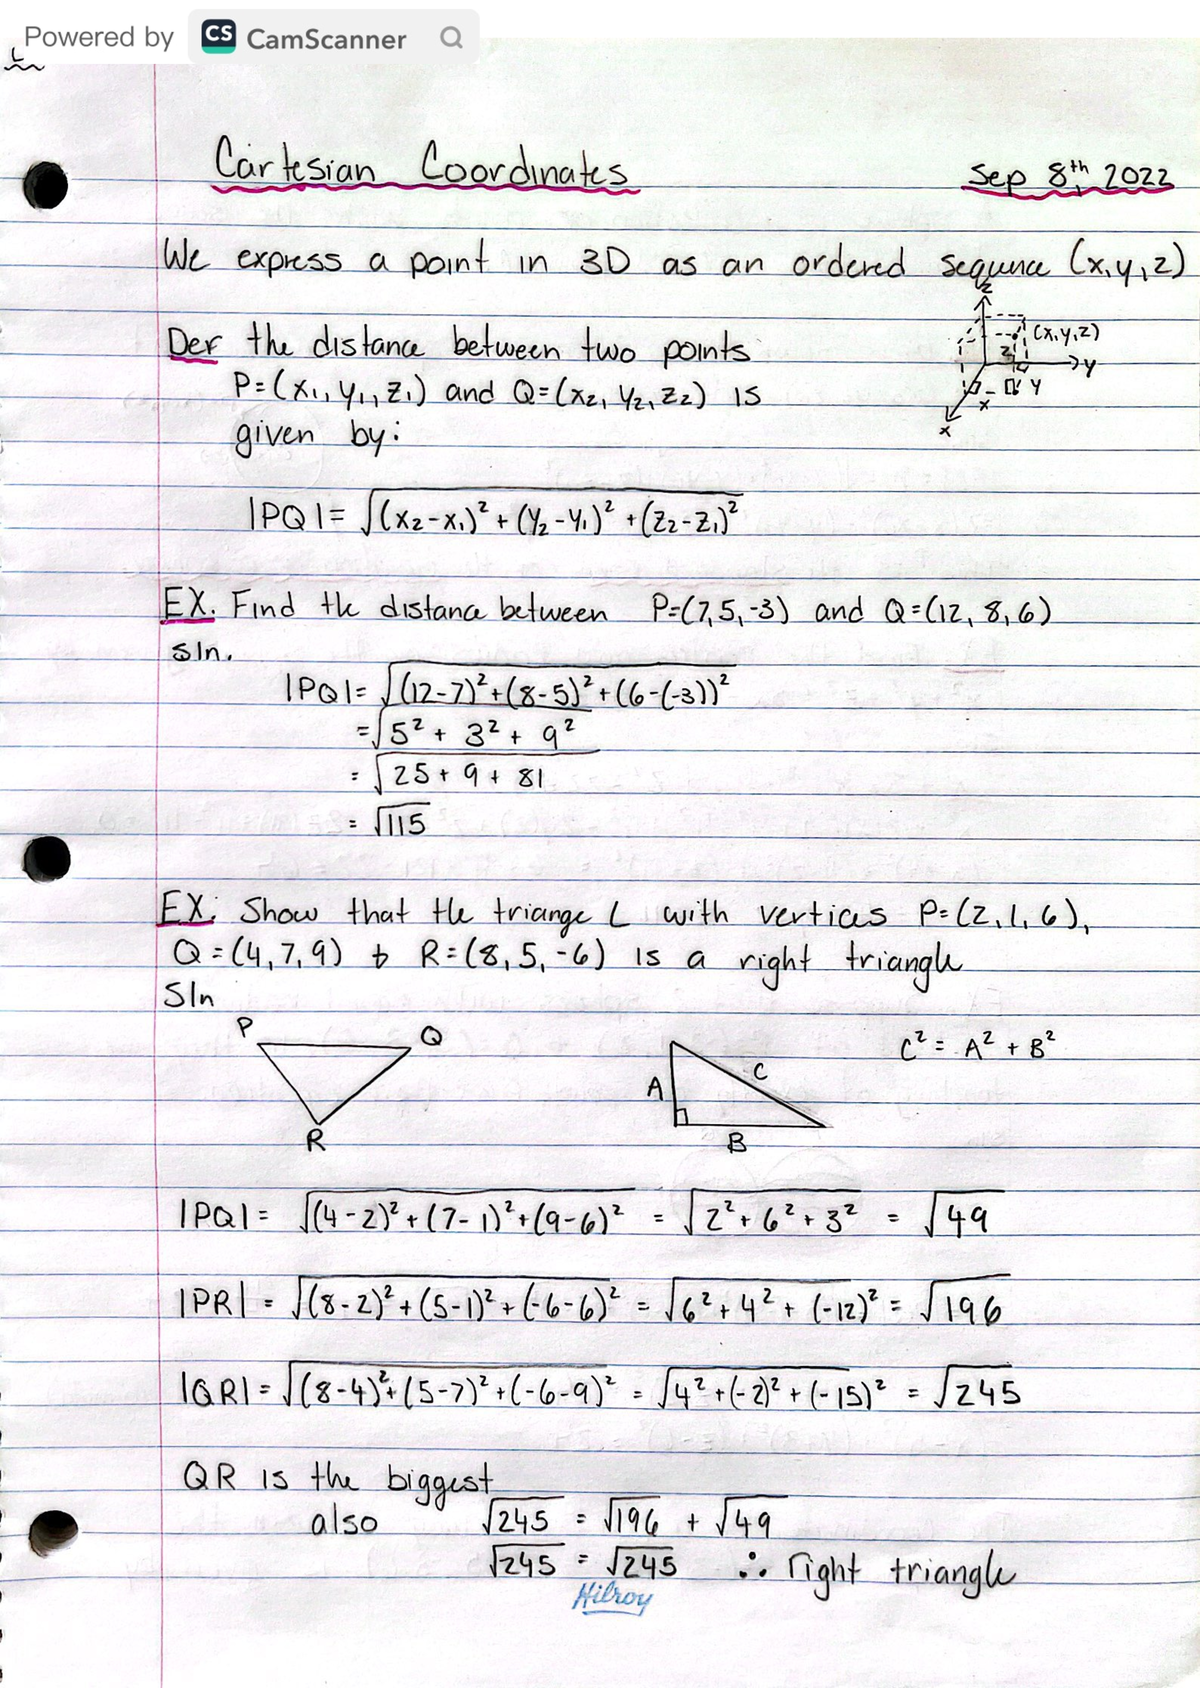 Powered by CS CamScanner
Cartesian Coordinates Sep 8th, 2022
We express a point in 3D as an ordered sequnce (x,y,z)
z
(x,y,z)
z
y
y
x
x
Der the distance between two points
P=(x₁, y₁, z₁) and Q=(x₂, y₂, z₂) is
given by:
|PQ| = √(x₂-x₁)² + (y₂-y₁)² + (z₂-z₁)²
EX. Find the distance between P=(7,5,-3) and Q=(12, 8, 6)
sln.
|PQ| = √(12-7)² + (8-5)² + (6-(-3))²
= √5² + 3² + 9²
= √25 + 9 + 81
= √115
EX: Show that the triange L with vertices P=(2,1,6),
Q=(4,7,9) & R=(8,5,-6) is a right triangle
Sln
P Q
R
A C
B
C² = A² + B²
|PQ| = √(4-2)² + (7-1)² + (9-6)² = √2² + 6² + 3² = √49
|PR| = √(8-2)² + (5-1)² + (-6-6)² = √6² + 4² + (-12)² = √196
|QR| = √(8-4)² + (5-7)² + (-6-9)² = √4² + (-2)² + (-15)² = √245
QR is the biggest
also √245 = √196 + √49
√245 = √245 ∴ right triangle
Hilroy